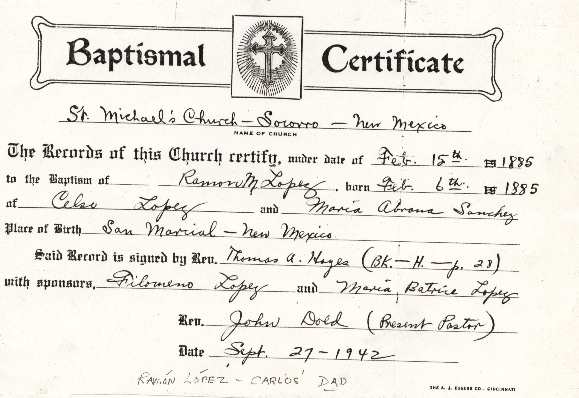 Baptismal Certificate
St. Michael's Church – Socorro – New Mexico
NAME OF CHURCH
The Records of this Church certify, under date of Feb. 15th. 1885
to the Baptism of Ramon M. Lopez, born Feb. 6th. 1885
of Celso Lopez and Maria Abrana Sanchez
Place of Birth San Marcial – New Mexico
Said Record is signed by Rev. Thomas A. Hayes (BK. – H. – p. 28)
with sponsors, Filomeno Lopez and Maria Batrice Lopez
Rev. John Dold (Present Pastor)
Date Sept. 27 – 1942
RAMÓN LÓPEZ – CARLOS' DAD
CINCINNATI